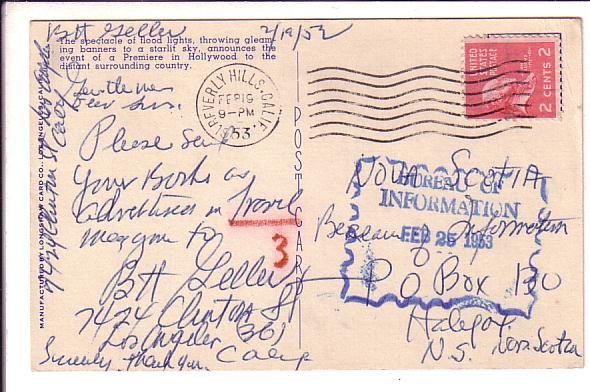 BH Geller 2/19/52
The spectacle of flood lights, throwing gleam-
ing banners to a starlit sky, announces the
event of a Premiere in Hollywood to the
distant surrounding country.
Gentlemen
Dear Sirs.
Please send
your Books as
advertised in Travel
magazine to
BH Geller
7424 Clinton St
Los Angeles
Calif
Sincerely, thank you.
7424 Clinton St Los Angeles
Calif
MANUFACTURED BY LONGSHAW CARD CO., LOS ANGELES
POST CARD
3
BEVERLY HILLS, CALIF.
FEB 19
9-PM
1953
UNITED
STATES
POSTAGE
2 CENTS 2
BUREAU OF
INFORMATION
FEB 25 1953
NOVA SCOTIA
Bureau of Information
P O Box 130
Halifax
N.S. Nova Scotia